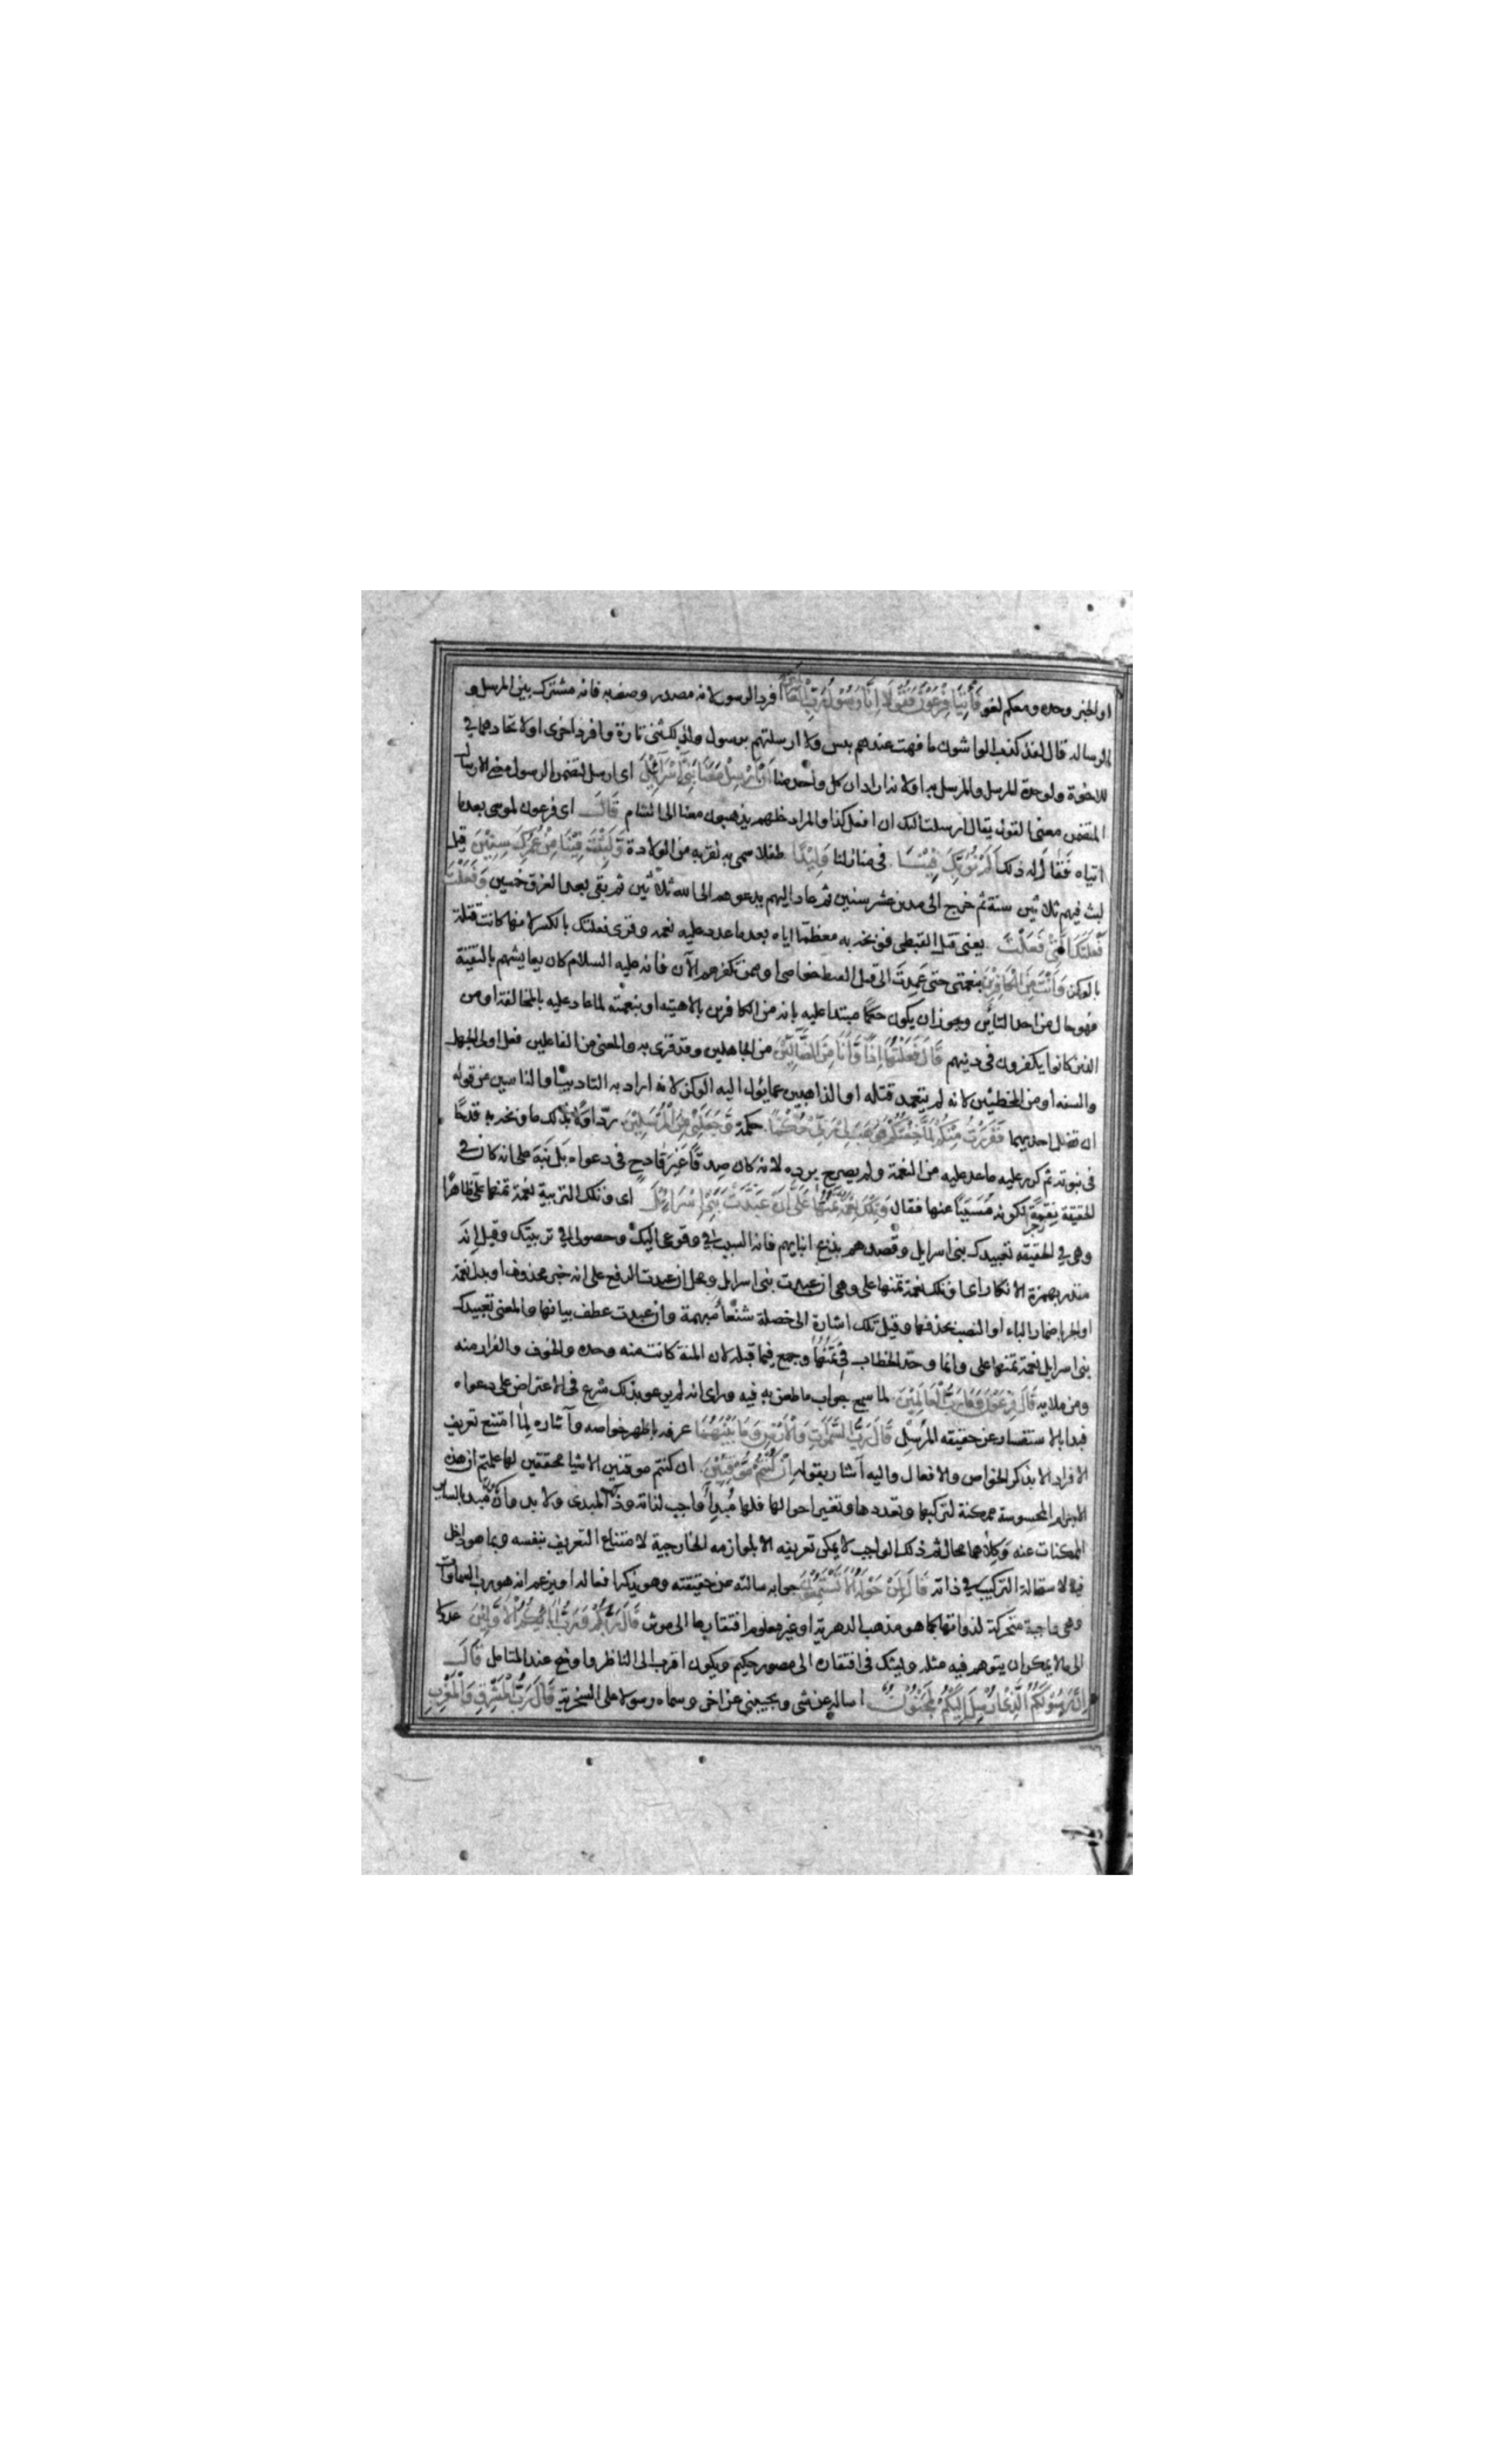 او الخبر وحده ومعكم لغو فَأْتِيَا فِرْعَوْنَ فَقُولَا اِنَّا رَسُوْلُ رَبِّ الْعَالَمِيْنَ افرد الرسول لانه مصدر وصف به فانه مشترك بين المرسل و
الرسالة قال لقد كذب الواشون ما فهت عندهم بسر ولا ارسلتهم برسول ولذلك ثنى تارة وافرد اخرى او لاتحادهما في
للاخوة ولوحدة المرسل والمرسل به او لانه اراد ان كل واحد منا اَنْ اَرْسِلْ مَعَنَا بَنِيْ اِسْرَآئِيْلَ اى ارسل لتضمن الرسول معنى الارسال
المتضمن معنى القول يقال ارسلت اليك ان افعل كذا والمراد خلهم يذهبون معنا الى الشام قَالَ اى فرعون لموسى بعد ما
اتياه فقالا له ذلك اَلَمْ نُرَبِّكَ فِيْنَا في منازلنا وَلِيْدًا طفلا سمى به لقربه من الولادة وَّلَبِثْتَ فِيْنَا مِنْ عُمُرِكَ سِنِيْنَ قيل
لبث فيهم ثلاثين سنة ثم خرج الى مدين عشر سنين ثم عاد اليهم يدعوهم الى الله ثلاثين ثم بقى بعد الغرق خمسين وَفَعَلْتَ
فَعْلَتَكَ الَّتِيْ فَعَلْتَ يعنى قتل القبطى فوبخه به معظما اياه بعد ما عدد عليه نعمه وقرئ فعلتك بالكسر لانها كانت قتلة
بالوكز وَاَنْتَ مِنَ الْكَافِرِيْنَ بنعمتى حتى عمدت الى قتل خواصى او ممن تكفرهم الآن فانه عليه السلام كان يعايشهم بالتقية
فهو حال من احدى التائين ويجوز ان يكون حكما مبتدا عليه بانه من الكافرين بالاهيته او بنعمته لما عاد عليه بالمخالفة او من
الذين كانوا يكفرون في دينهم قَالَ فَعَلْتُهَا اِذًا وَّاَنَا مِنَ الضَّآلِّيْنَ من الجاهلين وقد قرئ به والمعنى من الفاعلين فعل اولى الجهل
والسفه او من المخطئين لانه لم يتعمد قتله او الذاهبين عما يؤل اليه الوكز لانه اراد به التاديب او الناسين من قوله
ان تضل احديهما فَفَرَرْتُ مِنْكُمْ لَمَّا خِفْتُكُمْ فَوَهَبَ لِيْ رَبِّيْ حُكْمًا حكمة وَجَعَلَنِيْ مِنَ الْمُرْسَلِيْنَ ردا ولا بذلك ما وبخه به قدحا
في نبوته ثم كر عليه ما عد عليه من النعمة ولم يصرح برده لانه كان صدقا غير قادح في دعواه بل نبه على انه كان في
الحقيقة نقمة لكونه مسببا عنها فقال وَتِلْكَ نِعْمَةٌ تَمُنُّهَا عَلَيَّ اَنْ عَبَّدْتَ بَنِيْ اِسْرَائِيْلَ اى وتلك التربية نعمة تمنها على ظاهرا
وهي في الحقيقة تعبيدك بنى اسرايل وقصدهم بذبح ابنايهم فانه السبب في وقوعى اليك وحصولى في تربيتك وقيل انه
مقدر بهمزة الانكار اى او تلك نعمة تمنها على وهى ان عبدت بنى اسرايل ومحل ان عبدت الرفع على انه خبر محذوف او بدل نعمة
او الجر باضمار الباء او النصب بحذفها وقيل تلك اشارة الى خصلة شنعا مبهمة وان عبدت عطف بيانها والمعنى تعبيدك
بنى اسرايل نعمة تمنها على وانما وحد الخطاب في تَمُنُّهَا وجمع فيما قبله لان المنة كانت منه وحده والخوف والفرار منه
ومن ملايه قَالَ فِرْعَوْنُ وَمَا رَبُّ الْعَالَمِيْنَ لما سمع جواب ما طعن به فيه وراى انه لم يرعو بذلك شرع في الاعتراض على دعواه
فبدا بالاستفسار عن حقيقة المرسل قَالَ رَبُّ السَّمٰوَاتِ وَالْاَرْضِ وَمَا بَيْنَهُمَا عرفه باظهر خواصه وآثاره لما امتنع تعريف
الافراد الا بذكر الخواص والافعال واليه اشار بقوله اِنْ كُنْتُمْ مُّوْقِنِيْنَ ان كنتم موقنين الاشيا محققين لها علمتم ان هذه
الاجرام المحسوسة ممكنة لتركبها وتعددها وتغير احوالها فلها مبدأ واجب لذاته وذلك المبدئ ولا بد وان يكون مبدا لساير
الممكنات عنه وكلاهما محال ثم ذلك الواجب لا يمكن تعريفه الا بلوازمه الخارجية لامتناع التعريف بنفسه وبما هو داخل
فيه لاستحالة التركيب في ذاته قَالَ لِمَنْ حَوْلَهُ اَلَا تَسْتَمِعُوْنَ جوابه سالته عن حقيقته وهو يذكر افعاله او يزعم انه هو رب السماوات
وهى واجبة متحركة لذواتها كما هو مذهب الدهرية او غير معلوم افتقارها الى موثر قَالَ رَبُّكُمْ وَرَبُّ اٰبَآئِكُمُ الْاَوَّلِيْنَ عدولا
الى ما لا يمكن ان يتوهم فيه مثله ويشك في افتقاره الى مصور حكيم ويكون اقرب الى الناظر واوضح عند المتامل قَالَ
اِنَّ رَسُوْلَكُمُ الَّذِيْ اُرْسِلَ اِلَيْكُمْ لَمَجْنُوْنٌ اساله عن شى ويجيبنى عن اخر وسماه رسولا على السخرية قَالَ رَبُّ الْمَشْرِقِ وَالْمَغْرِبِ